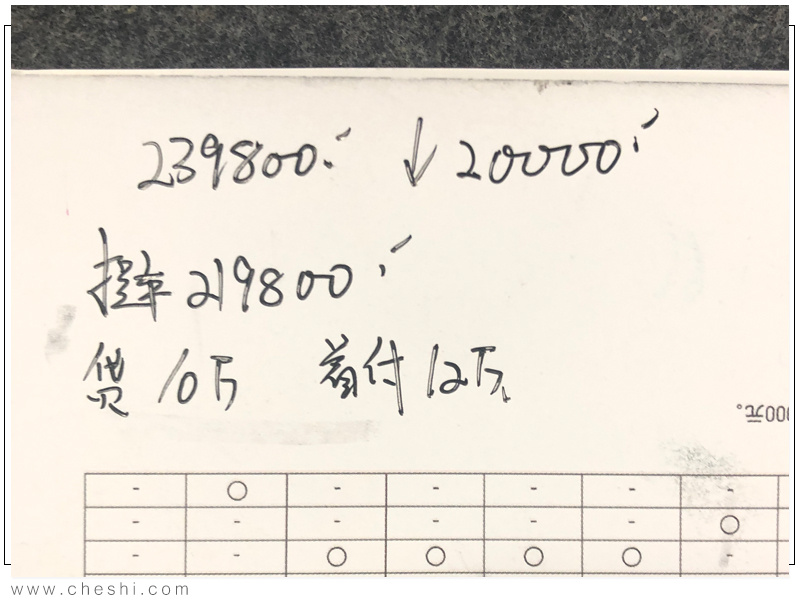 239800.- ↓ 20000.-
提车 219800.-
贷 10万 首付 12万
000元。
www.cheshi.com